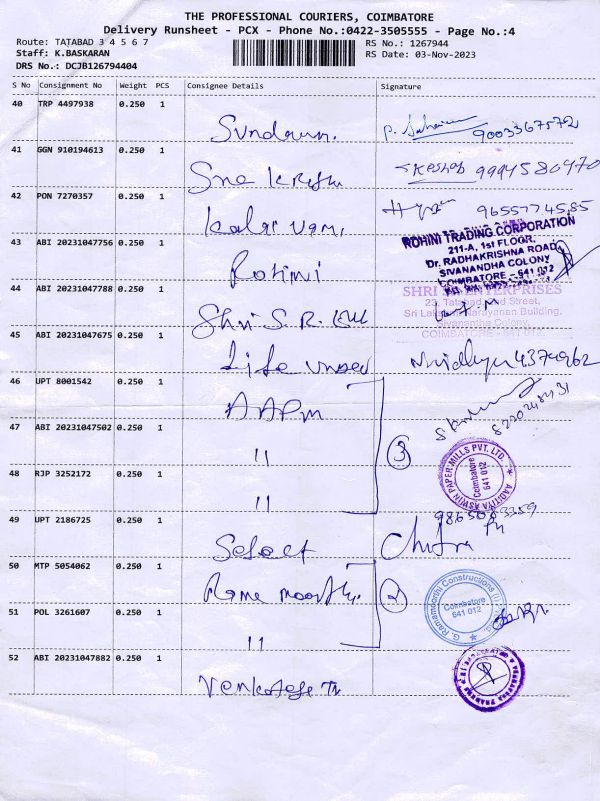 THE PROFESSIONAL COURIERS, COIMBATORE
Delivery Runsheet - PCX - Phone No.:0422-3505555 - Page No.:4
Route: TATABAD 3 4 5 6 7
RS No.: 1267944
Staff: K.BASKARAN
RS Date: 03-Nov-2023
DRS No.: DCJB126794404
S No Consignment No Weight PCS Consignee Details Signature
40 TRP 4497938 0.250 1
Sundaram. 9003367572
41 GGN 910194613 0.250 1
Sree Krishn
42 PON 7270357 0.250 1
Kalai vani 9655774585
43 ABI 20231047756 0.250 1
Rohini
ROHINI TRADING CORPORATION
211-A, 1st FLOOR,
Dr. RADHAKRISHNA ROAD
SIVANANDHA COLONY
COIMBATORE - 641 012
44 ABI 20231047788 0.250 1
Shri S.R.
SHRI ENTERPRISES
23, Tatabad, 2nd Street,
Sri Narayanan Building,
Sivanantha Colony,
COIMBATORE - 641 012.
45 ABI 20231047675 0.250 1
Life
46 UPT 8001542 0.250 1
AAPM
47 ABI 20231047502 0.250 1
11
3
AADITYA ASWIN PAPER MILLS PVT. LTD.
Coimbatore
641 012
48 RJP 3252172 0.250 1
11
49 UPT 2186725 0.250 1
Select Chitra
50 MTP 5054062 0.250 1
Rama moorthy
2
G. Ramamoorthi Constructions (I)
Coimbatore
641 012
51 POL 3261607 0.250 1
11
52 ABI 20231047882 0.250 1
Venkatesa Tr